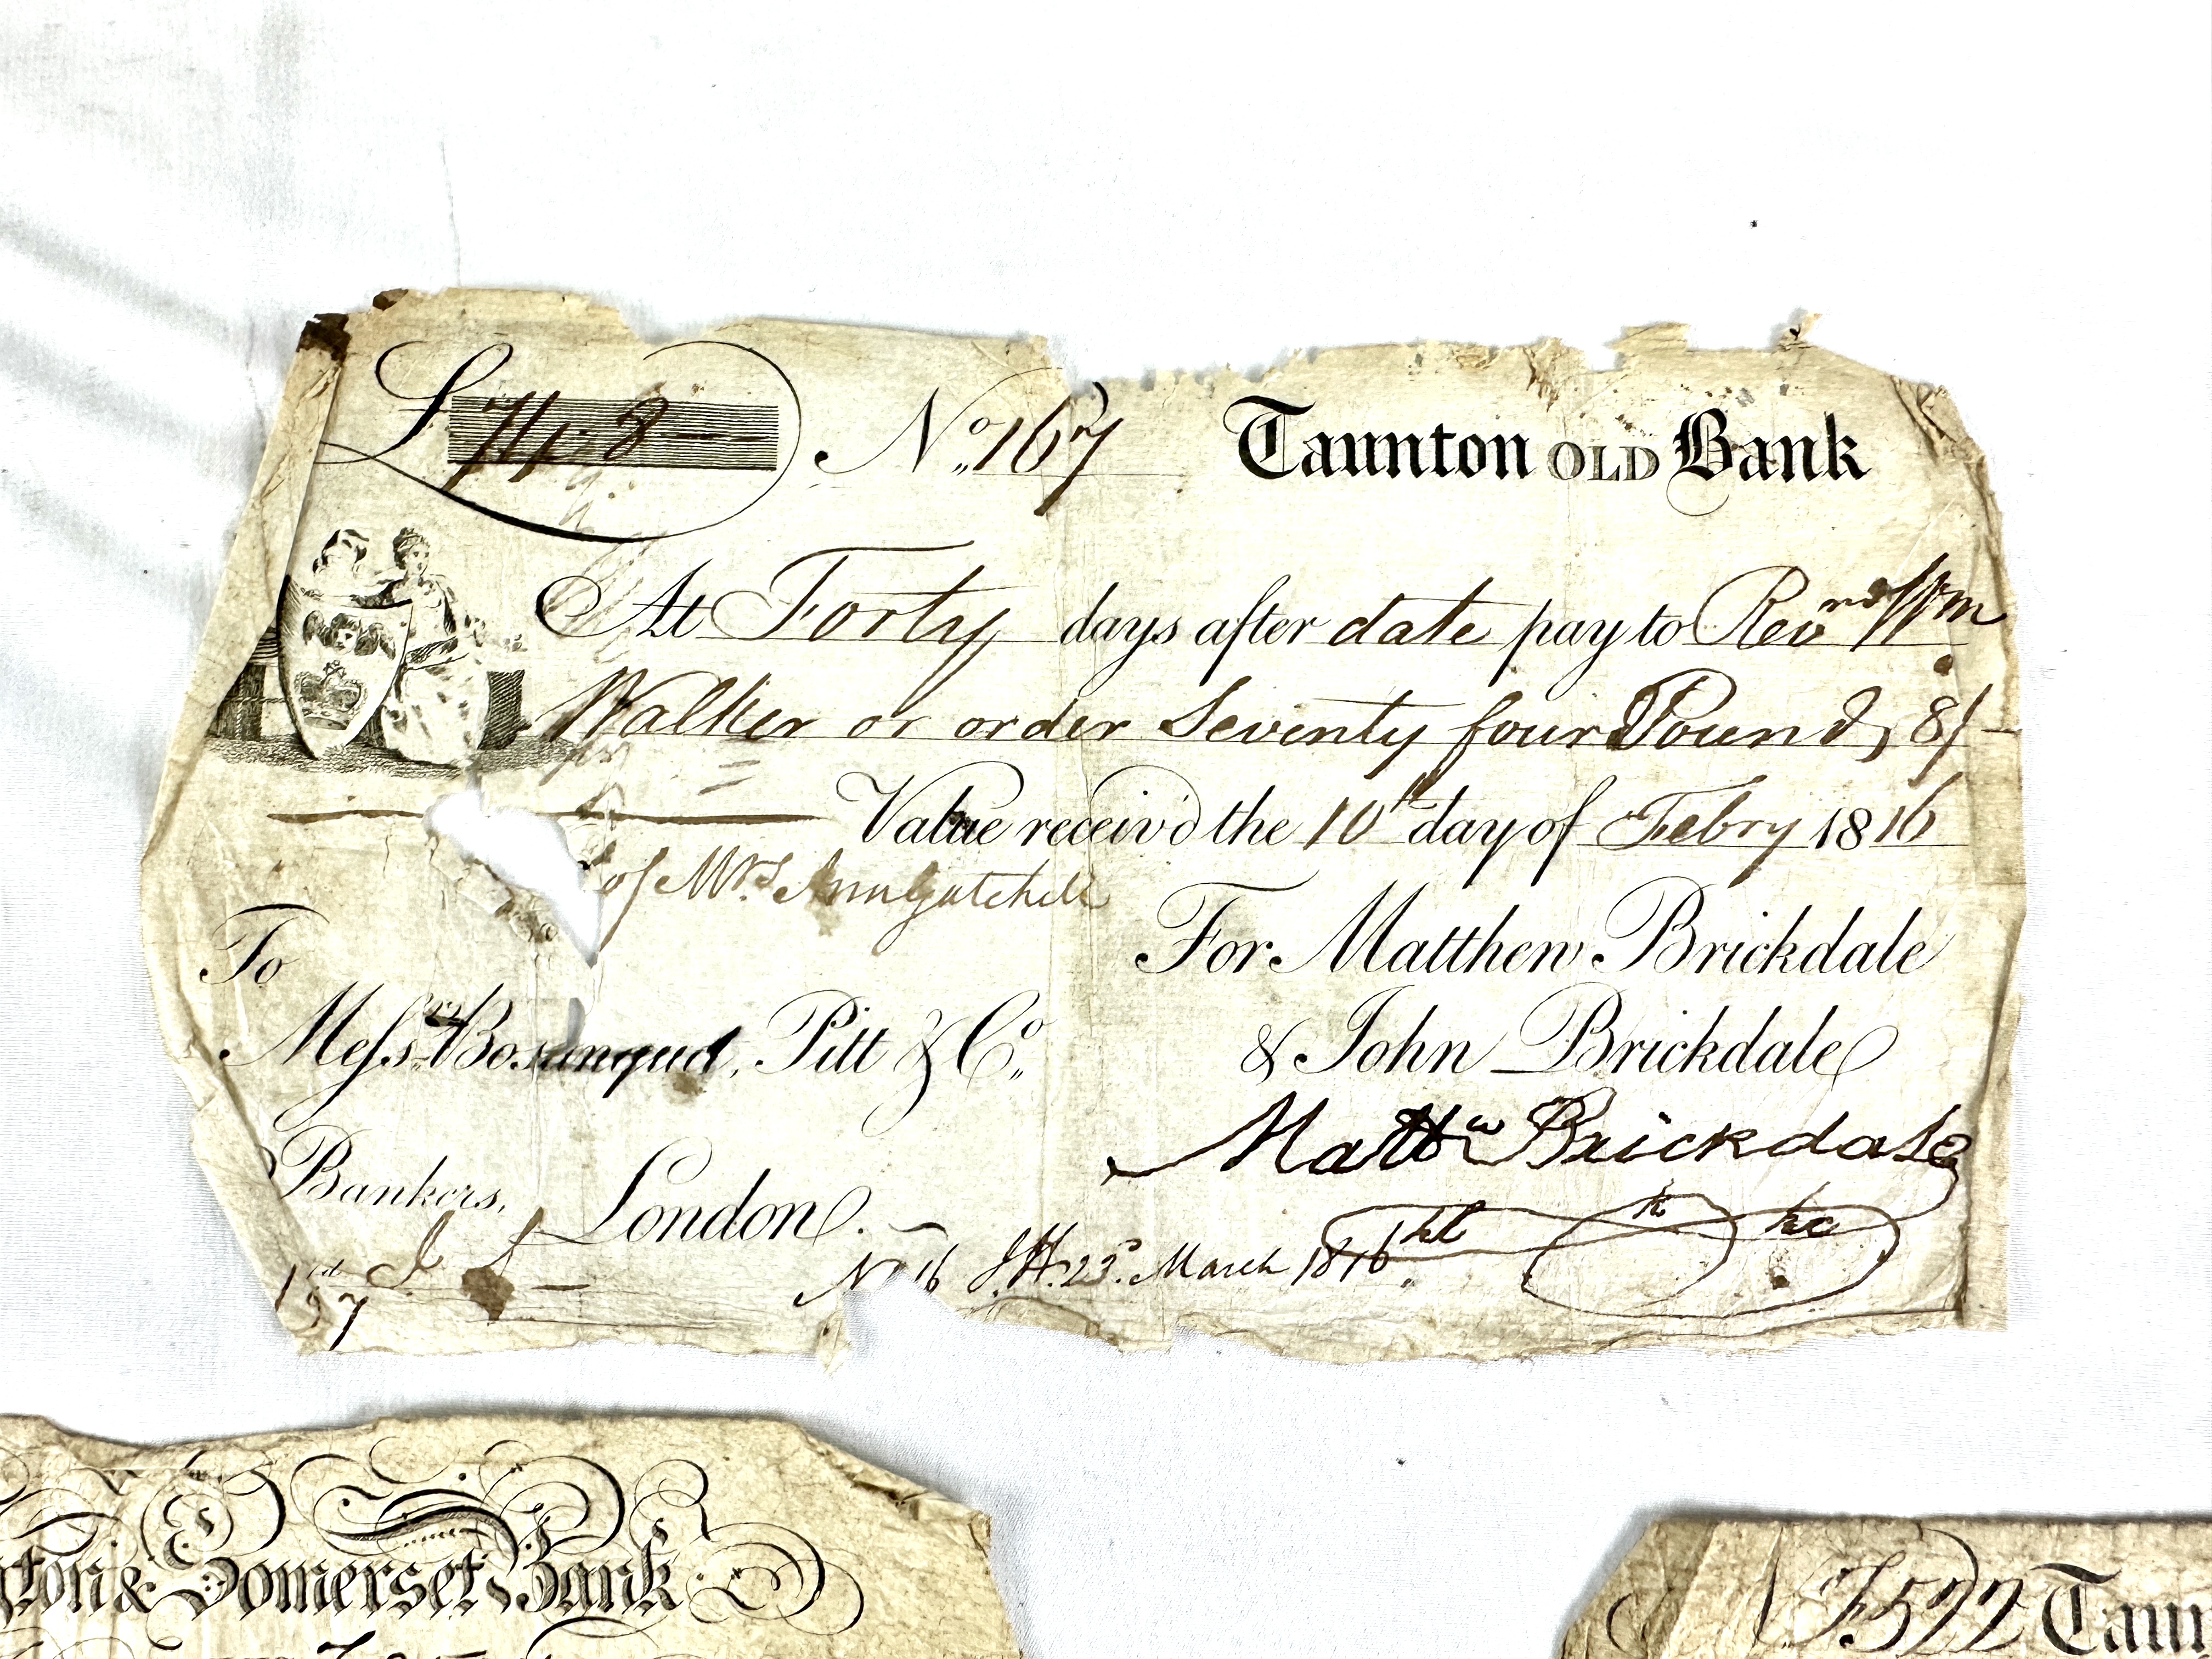 £ 74,, 8 — — N.º 167 Taunton OLD Bank
At Forty days after date pay to Revnd Wm
Walker or order Seventy four Pounds 8/-
Value receiv'd the 10th day of Febry 1816
of Mrs. Ann Gatchell
For Matthew Brickdale
& John Brickdale
To
Messrs. Bosanquet, Pitt & Co.
Mattw Brickdale
Bankers, London.
23 March 1816
& Somerset Bank
522 Taun